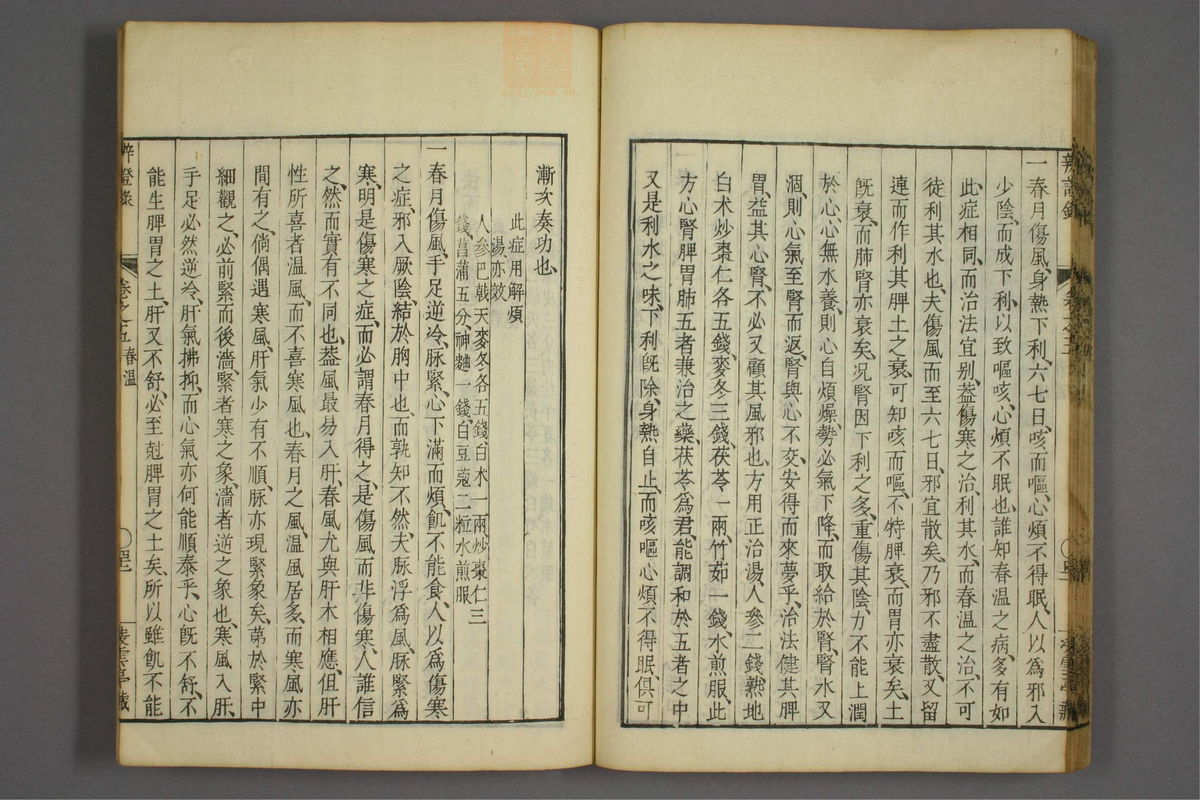 一春月傷風身熱下利六七日咳而嘔心煩不得眠人以爲邪入
少陰而成下利以致嘔咳心煩不眠也誰知春温之病多有如
此症相同而治法宜别葢傷寒之治利其水而春温之治不可
徒利其水也夫傷風而至六七日邪宜散矣乃邪不盡散又留
連而作利其脾土之衰可知咳而嘔不特脾衰而胃亦衰矣土
旣衰而肺腎亦衰矣况腎因下利之多重傷其陰力不能上潤
於心心無水養則心自煩燥勢必氣下降而取給於腎腎水又
涸則心氣至腎而返腎與心不交安得而來夢乎治法健其脾
胃益其心腎不必又顧其風邪也方用正治湯人參二錢熟地
白术炒棗仁各五錢麥冬三錢茯苓一兩竹茹一錢水煎服此
方心腎脾胃肺五者兼治之藥茯苓爲君能調和於五者之中
又是利水之味下利旣除身熱自止而咳嘔心煩不得眠俱可
漸次奏功也
此症用解煩
湯亦效
人參巴戟天麥冬各五錢白术一兩炒棗仁三
錢菖蒲五分神麯一錢白豆蔻二粒水煎服
一春月傷風手足逆冷脉緊心下滿而煩飢不能食人以爲傷寒
之症邪入厥陰結於胸中也而孰知不然夫脉浮爲風脉緊爲
寒明是傷寒之症而必謂春月得之是傷風而非傷寒人誰信
之然而實有不同也葢風最易入肝春風尤與肝木相應但肝
性所喜者温風而不喜寒風也春月之風温風居多而寒風亦
間有之倘偶遇寒風肝氣少有不順脉亦現緊象矣第於緊中
細觀之必前緊而後濇緊者寒之象濇者逆之象也寒風入肝
手足必然逆冷肝氣拂抑而心氣亦何能順泰乎心旣不舒不
能生脾胃之土肝又不舒必至尅脾胃之土矣所以雖飢不能
卷之五 春温